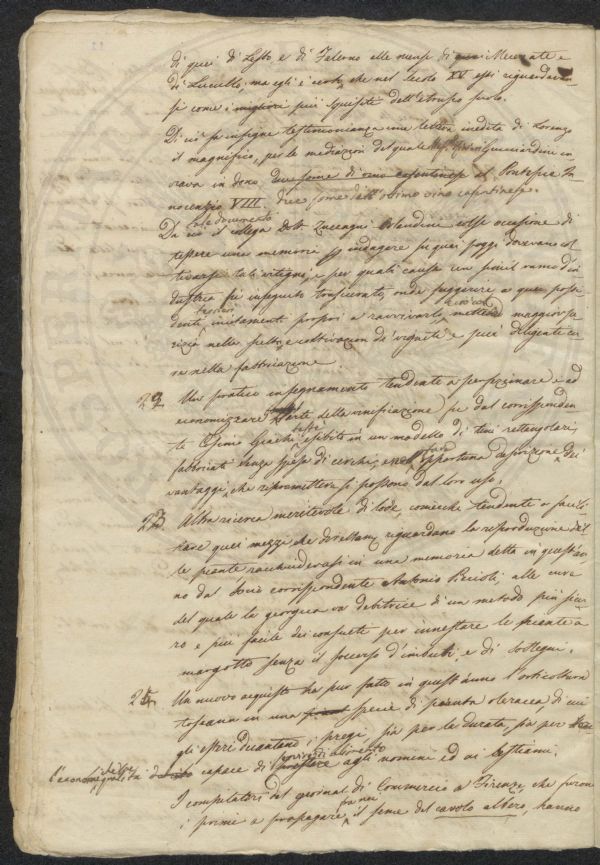 di quei di Lesbo e di Falerno alle mense di Mecenate e
di Lucullo: ma egli è certo, che nel secolo XV essi riguardavan-
si come i migliori più squisiti dell'etrusco suolo.
Di ciò fa insigne testimonianza una lettera inedita di Lorenzo
il magnifico, per la mediazione del quale Guicciardini in
viava in dono due some di vino casentinese al Pontefice In-
nocenzio VIII due some dell'ottimo vino casentinese.
tale documento
Da ciò il collega Dott. Zuccagni Orlandini colse occasione di
tessere una memoria indagare su quei poggi dovevano col
tivarsi tali vitigni, e per quali cause un simil ramo d'in
dustria fu in seguito trascurato, onde suggerire a quei possi-
denti incitamenti propri a ravvivarlo maggior
nella scelta e coltivazion di vigneti e più diligente cu
ra nella fabbricazione.
22 Un pratico insegnamento tendente a perfezionare e ad
economizzare l'arte della vinificazione fu dal corrisponden
te Giachi esibito in un modello di tini rettangolari,
fabbricati senza spesa di cerchi, opportuna descrizione dei
vantaggi, che ripromettere si possono dal loro uso.
23 Altra ricerca meritevole di lode, comecché tendente a facili
tare quei mezzi che direttam. riguardano la riproduzione del
le piante racchiudevasi in una memoria letta in quest'an
no dal socio corrispondente Antonio Piccioli; alle cure
del quale la georgica va debitrice di un metodo più sicu
ro e più facile dei consueti per innestare le piante a
margotto senza il soccorso d'imbuti, e di sostegni.
24 Un nuovo acquisto ha pur fatto in quest'anno l'orticoltura
toscana in una specie di pianta oleracea di cui
gli esteri decantano i pregi, sia per la durata, sia per
capace di servire di alimento agli uomini ed ai bestiami.
I compilatori del giornal di Commercio a Firenze che furono
fra noi
i primi a propagare il seme del cavolo albero, hanno